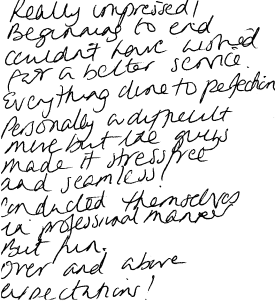 Really impressed!
Beginning to end
couldn't have wished
for a better service.
Everything done to perfection
Personally a difficult
move but the guys
made it stress free
and seamless!
Conducted themselves
in professional manner
But fun.
Over and above
expectations!